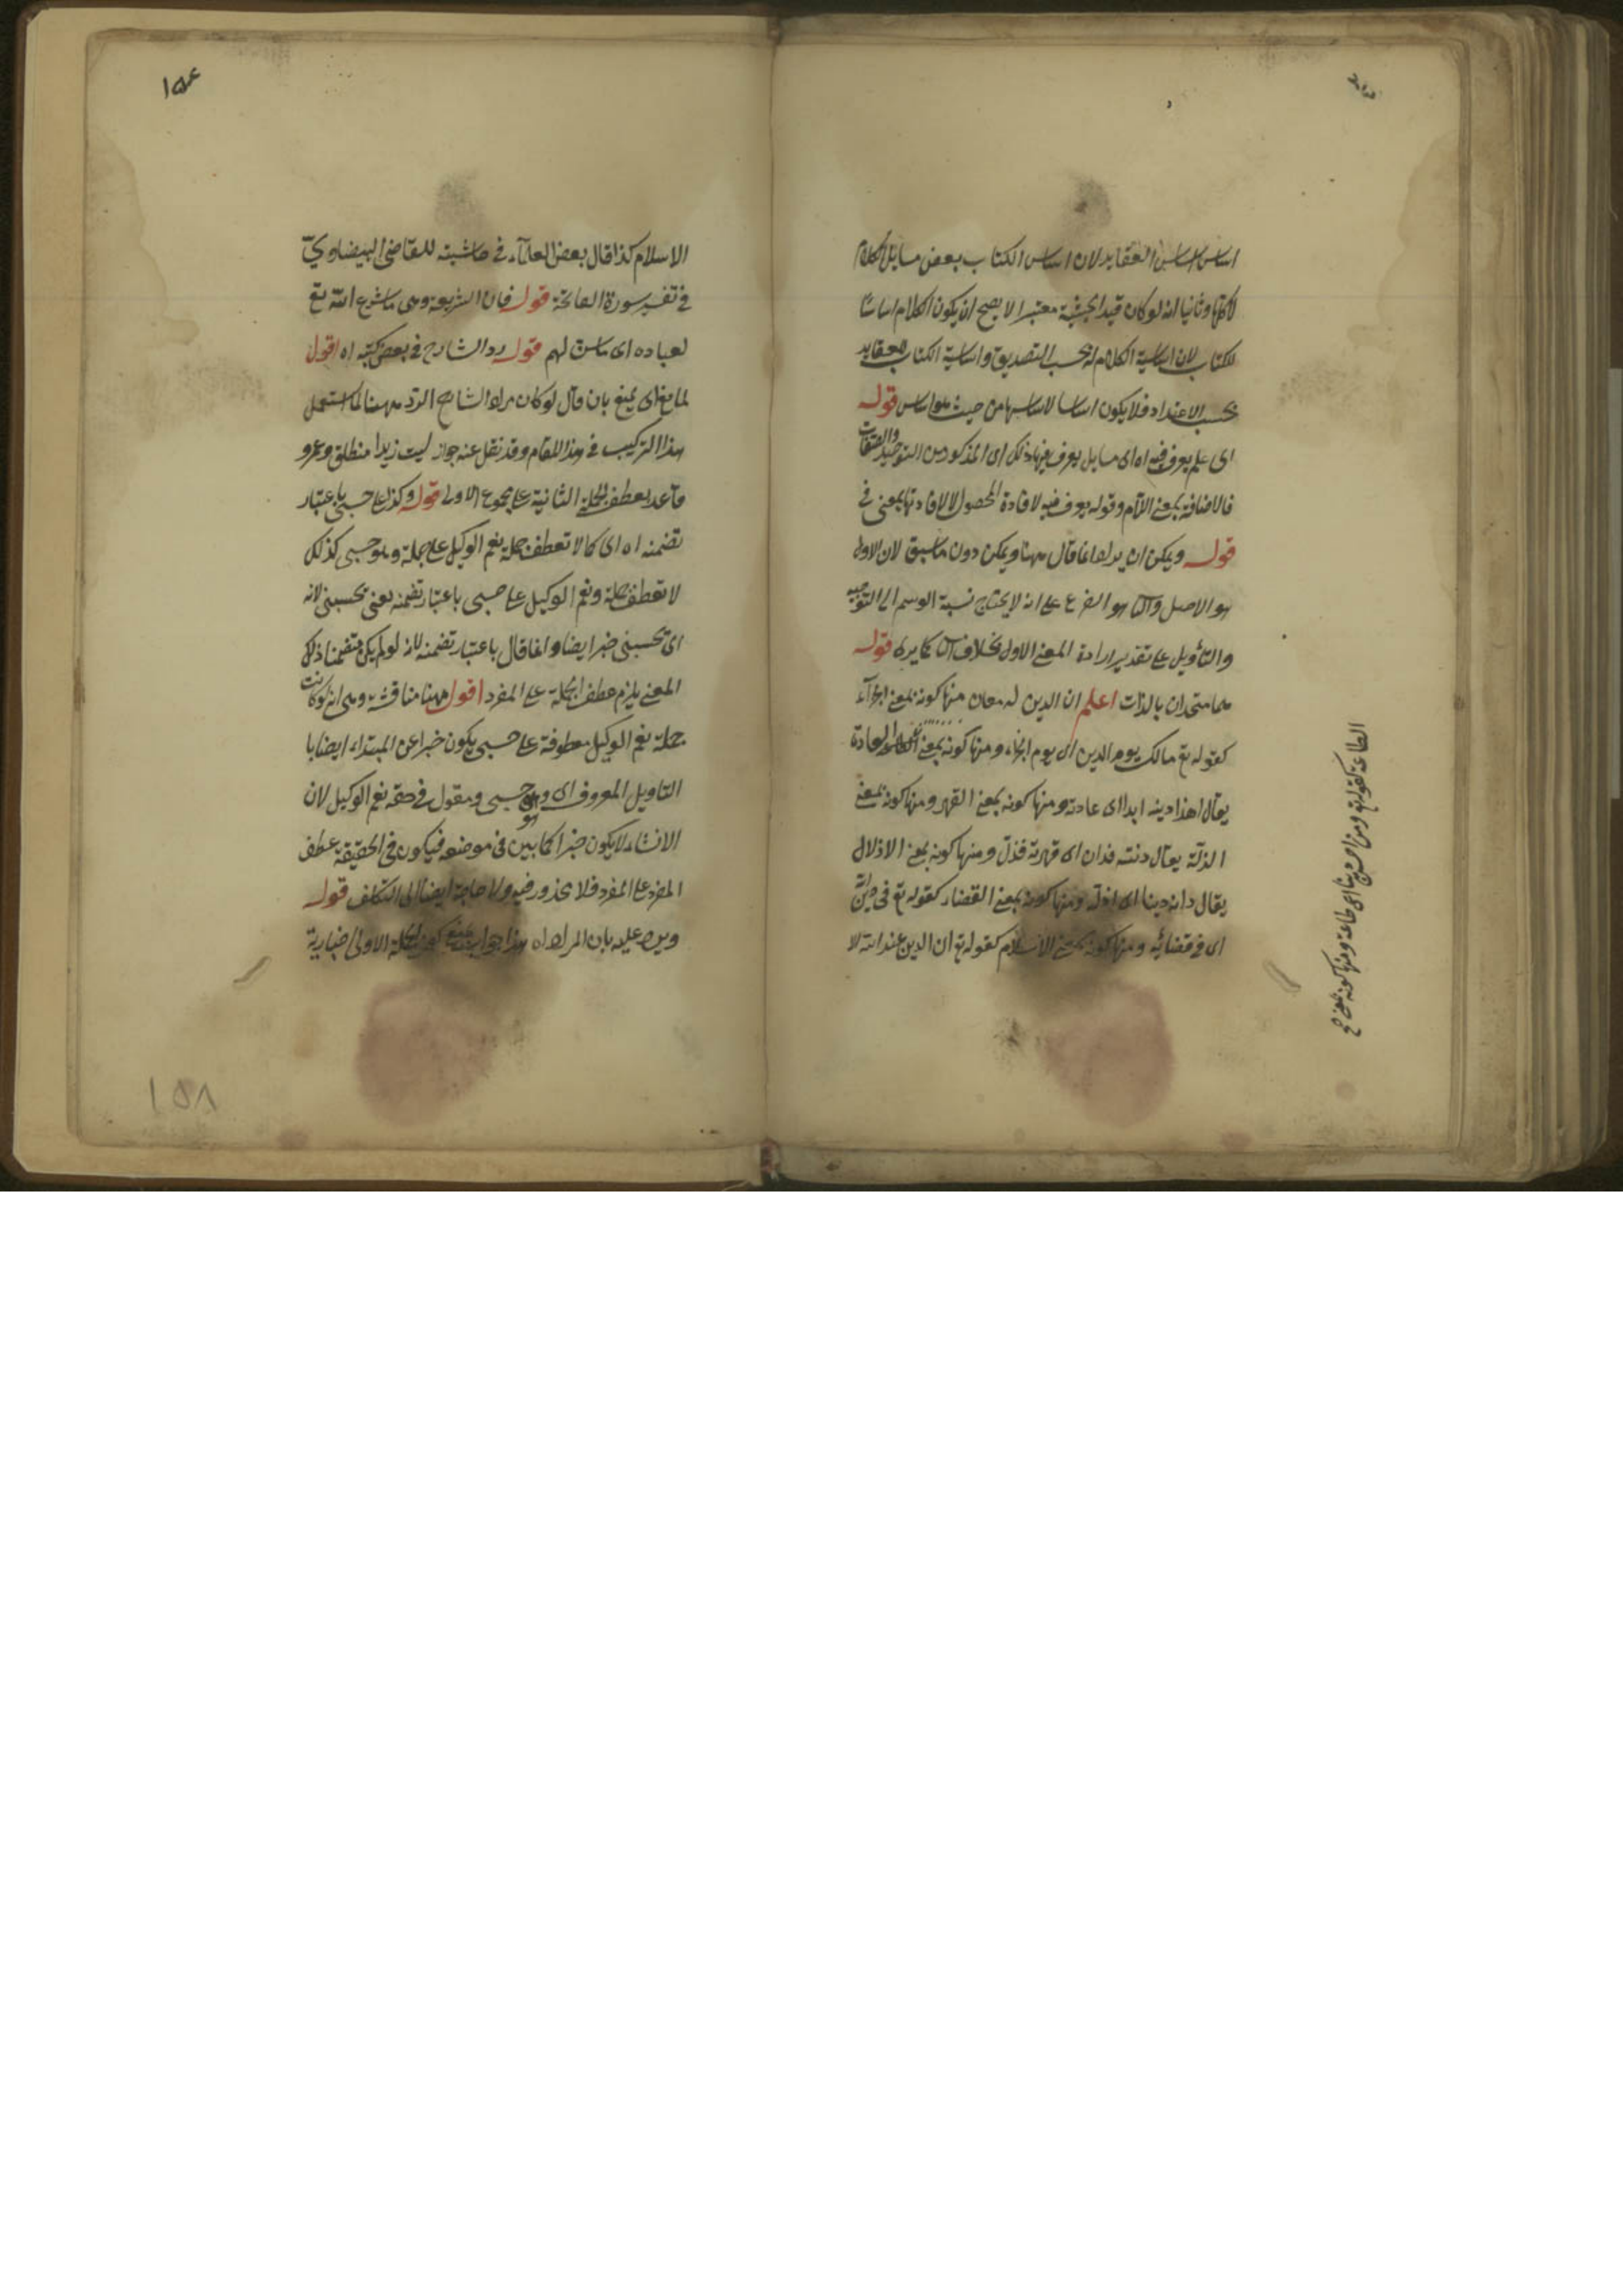 اساس اساس العقايد لان اساس الكتاب بعض مسايل الكلام
لا كلها وثانيا انه لو كان قيد الحيثية معتبرا لا يصح ان يكون الكلام اساسا
للكتاب لان اساسية الكلام له بحسب التصديق واساسية الكتاب للعقايد
بحسب الاعتداد فلا يكون اساسا لاساسها من حيث هو اساس قوله
اى علم يعرف فيه اه اى مسايل يعرف فيها ذلك اى المذكور من التوحيد والصفات
فالاضافة بمعنى اللام وقوله يعرف فيه لافادة الحصول لا لافادتها بمعنى فى
قوله ويمكن ان يراد انما قال ههنا ويمكن دون ما سبق لان الاول
هو الاصل والثا هو الفرع على انه لا يحتاج نسبة الوسم الى التوجيه
والتأويل على تقدير ارادة المعنى الاول بخلاف الثا كما يرى قوله
هما متحدان بالذات اعلم ان الدين له معان منها كونه بمعنى الجزآء
كقوله تع مالك يوم الدين اى يوم الجزاء ومنها كونه بمعنى العادة
يقال هذا دينه ابدا اى عادته ومنها كونه بمعنى القهر ومنها كونه بمعنى
الذلة يقال دنته فدان اى قهرته فذل ومنها كونه بمعنى الاذلال
يقال دانه دينا اى اذله ومنها كونه بمعنى القضاء كقوله تع فى دين الله
اى فى قضائه ومنها كونه بمعنى الاسلام كقوله تع ان الدين عند الله الا
الطاعة كقوله تع ومن احسن دينا اى طاعة ومنها كونه بمعنى
١٥٤
الاسلام كذا قال بعض العلمآء فى حاشيته للقاضى البيضاوي
فى تفسير سورة الفاتحة قوله فان الشريعة وهى ما شرع الله تع
لعباده اى ما سن لهم قوله رد الشارح فى بعض كتبه اه اقول
لمانع اى يمنع بان قال لو كان مراد الشارح الرد ههنا لما استعمل
هذا التركيب فى هذا المقام وقد نقل عنه جواز ليت زيدا منطلق وعمرو
قاعد بعطف الجملة الثانية على مجموع الاولى قوله وكذا على حسبى باعتبار
تضمنه اه اى كما لا تعطف جملة نعم الوكيل على جملة وهو حسبى كذلك
لا تعطف جملة ونعم الوكيل على حسبى باعتبار تضمنه معنى يحسبنى لانه
اى يحسبنى خبر ايضا وانما قال باعتبار تضمنه لانه لو لم يكن متضمنا ذلك
المعنى يلزم عطف الجملة على المفرد اقول ههنا مناقشة وهى انه لو كانت
جملة نعم الوكيل معطوفة على حسبى يكون خبرا عن المبتداء ايضا با
التاويل المعروف اى وهو حسبى ومقول فى حقه نعم الوكيل لان
الانشاء لا يكون خبرا كما بين فى موضعه فيكون فى الحقيقة عطف
المفرد على المفرد فلا محذور فيه ولا حاجة ايضا الى التكلف قوله
ويرد عليه بان المراد اه هذا جواب بمنع كون الجملة الاولى اخبارية
١٥٨